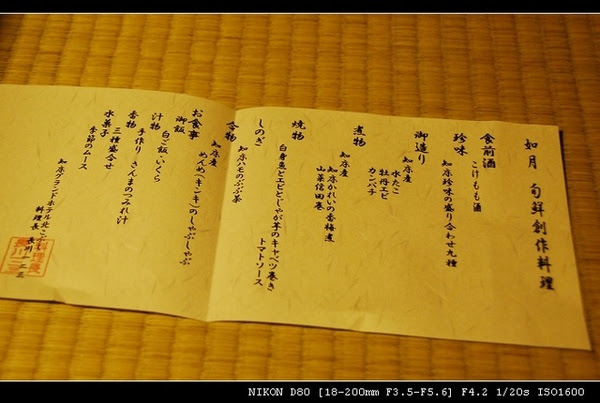 如月 旬鮮創作料理
食前酒
こけもも酒
珍味
知床珍味の盛り合わせ九種
御造り
知床産
水たこ
牡丹エビ
カンパチ
煮物
知床産
知床かれいの香梅煮
山菜信田巻
焼物
白身魚とエビとじゃが芋のキャベツ巻き
トマトソース
しのぎ
知床ハモのぶぶ茶
合物
知床産
めんめ(キンキ)のしゃぶしゃぶ
お食事
御飯
白ご飯・いくら
汁物
手作りさんまのつみれ汁
香物
三種盛合せ
水菓子
季節のムース
知床グランドホテル北こぶし
料理長 長川一二三
NIKON D80 [18-200mm F3.5-F5.6] F4.2 1/20s ISO1600